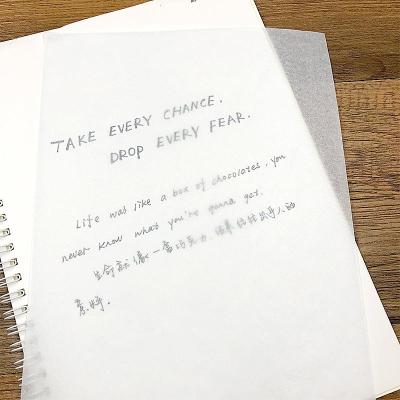 TAKE EVERY CHANCE.
DROP EVERY FEAR.
Life was like a box of chocolates, you
never know what you're gonna get.
生命就像一盒巧克力,结果往往出乎人的
意料。